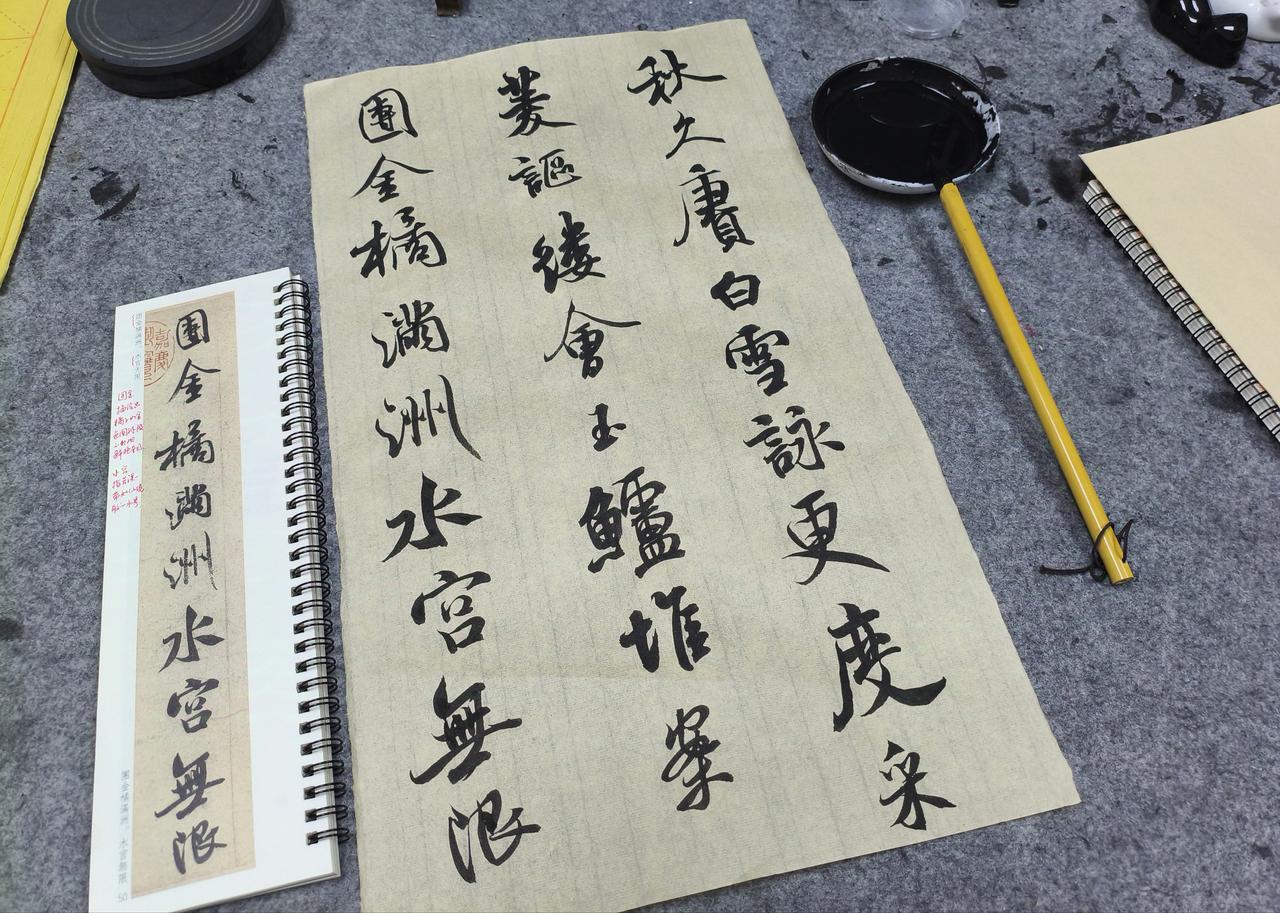 秋久賡白雪詠更度采
菱謳縷會玉鱸堆案
團金橘滿洲水宮無限
團金橘滿洲水宮無限
團金橘滿洲。水宮無限 50